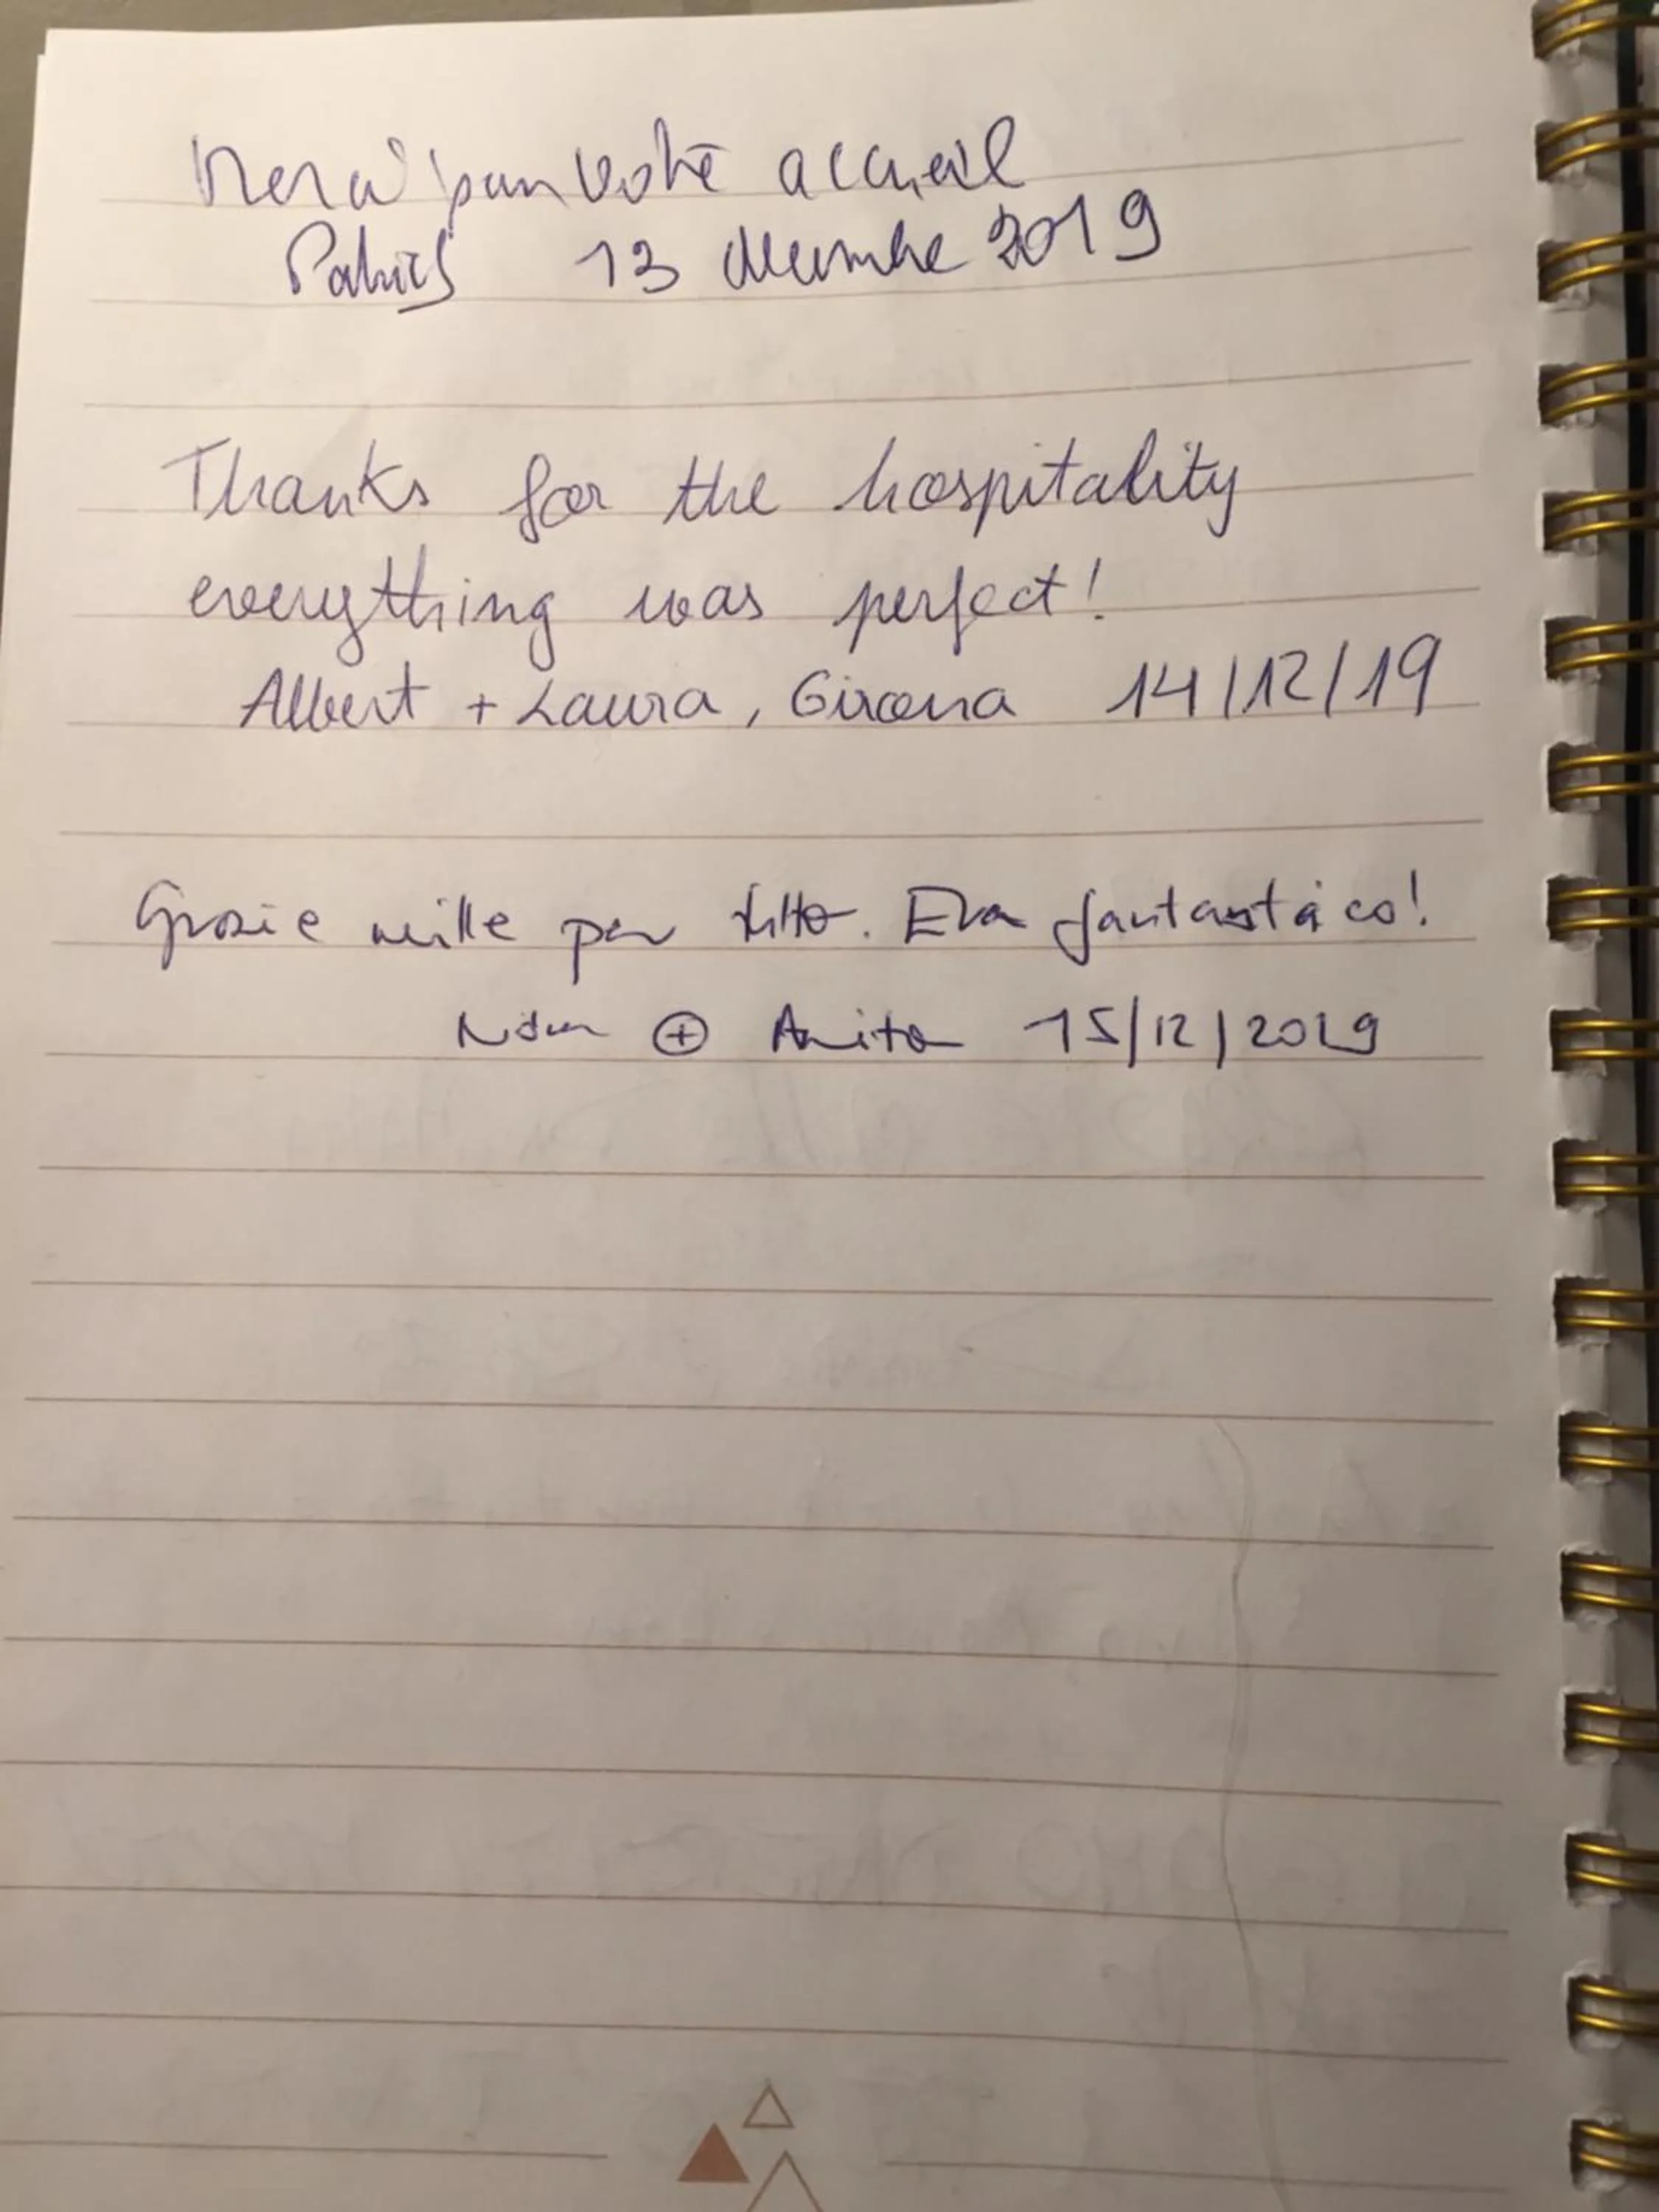 Merci pour votre accueil
Patrick 13 decembre 2019
Thanks for the hospitality
everything was perfect!
Albert + Laura, Girona 14/12/19
Grazie mille per tutto. Era fantastico!
+ Anita 15/12/2019